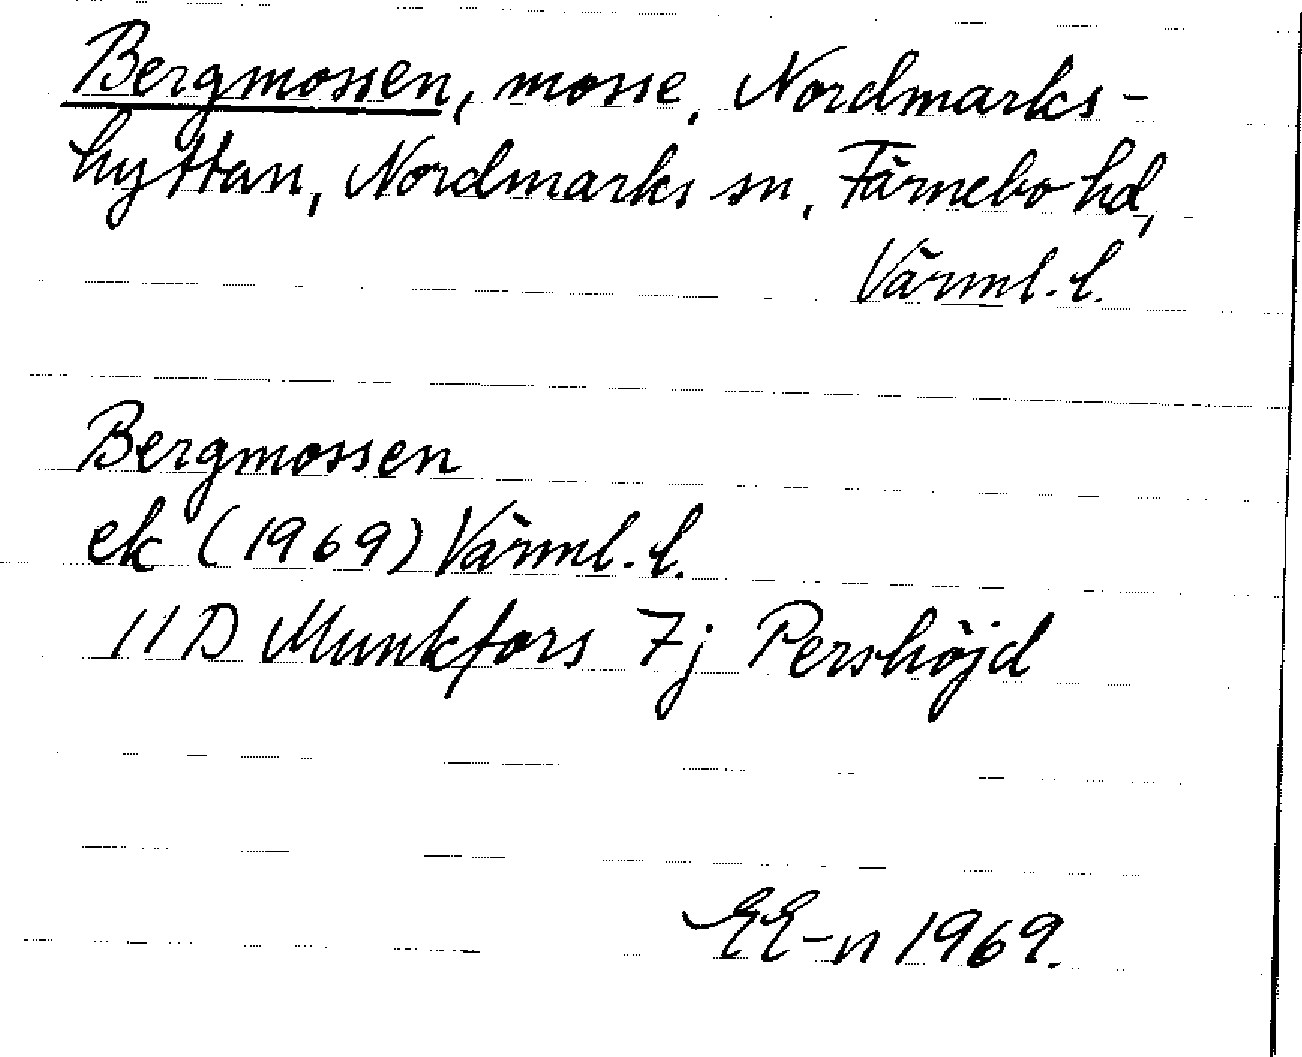 Bergmossen, mosse, Nordmarks-
hyttan, Nordmarks sn, Färnebo hd,
Värml. l.
Bergmossen
ek (1969) Värml. l.
11D Munkfors 7j Pershöjd
EE-n 1969.